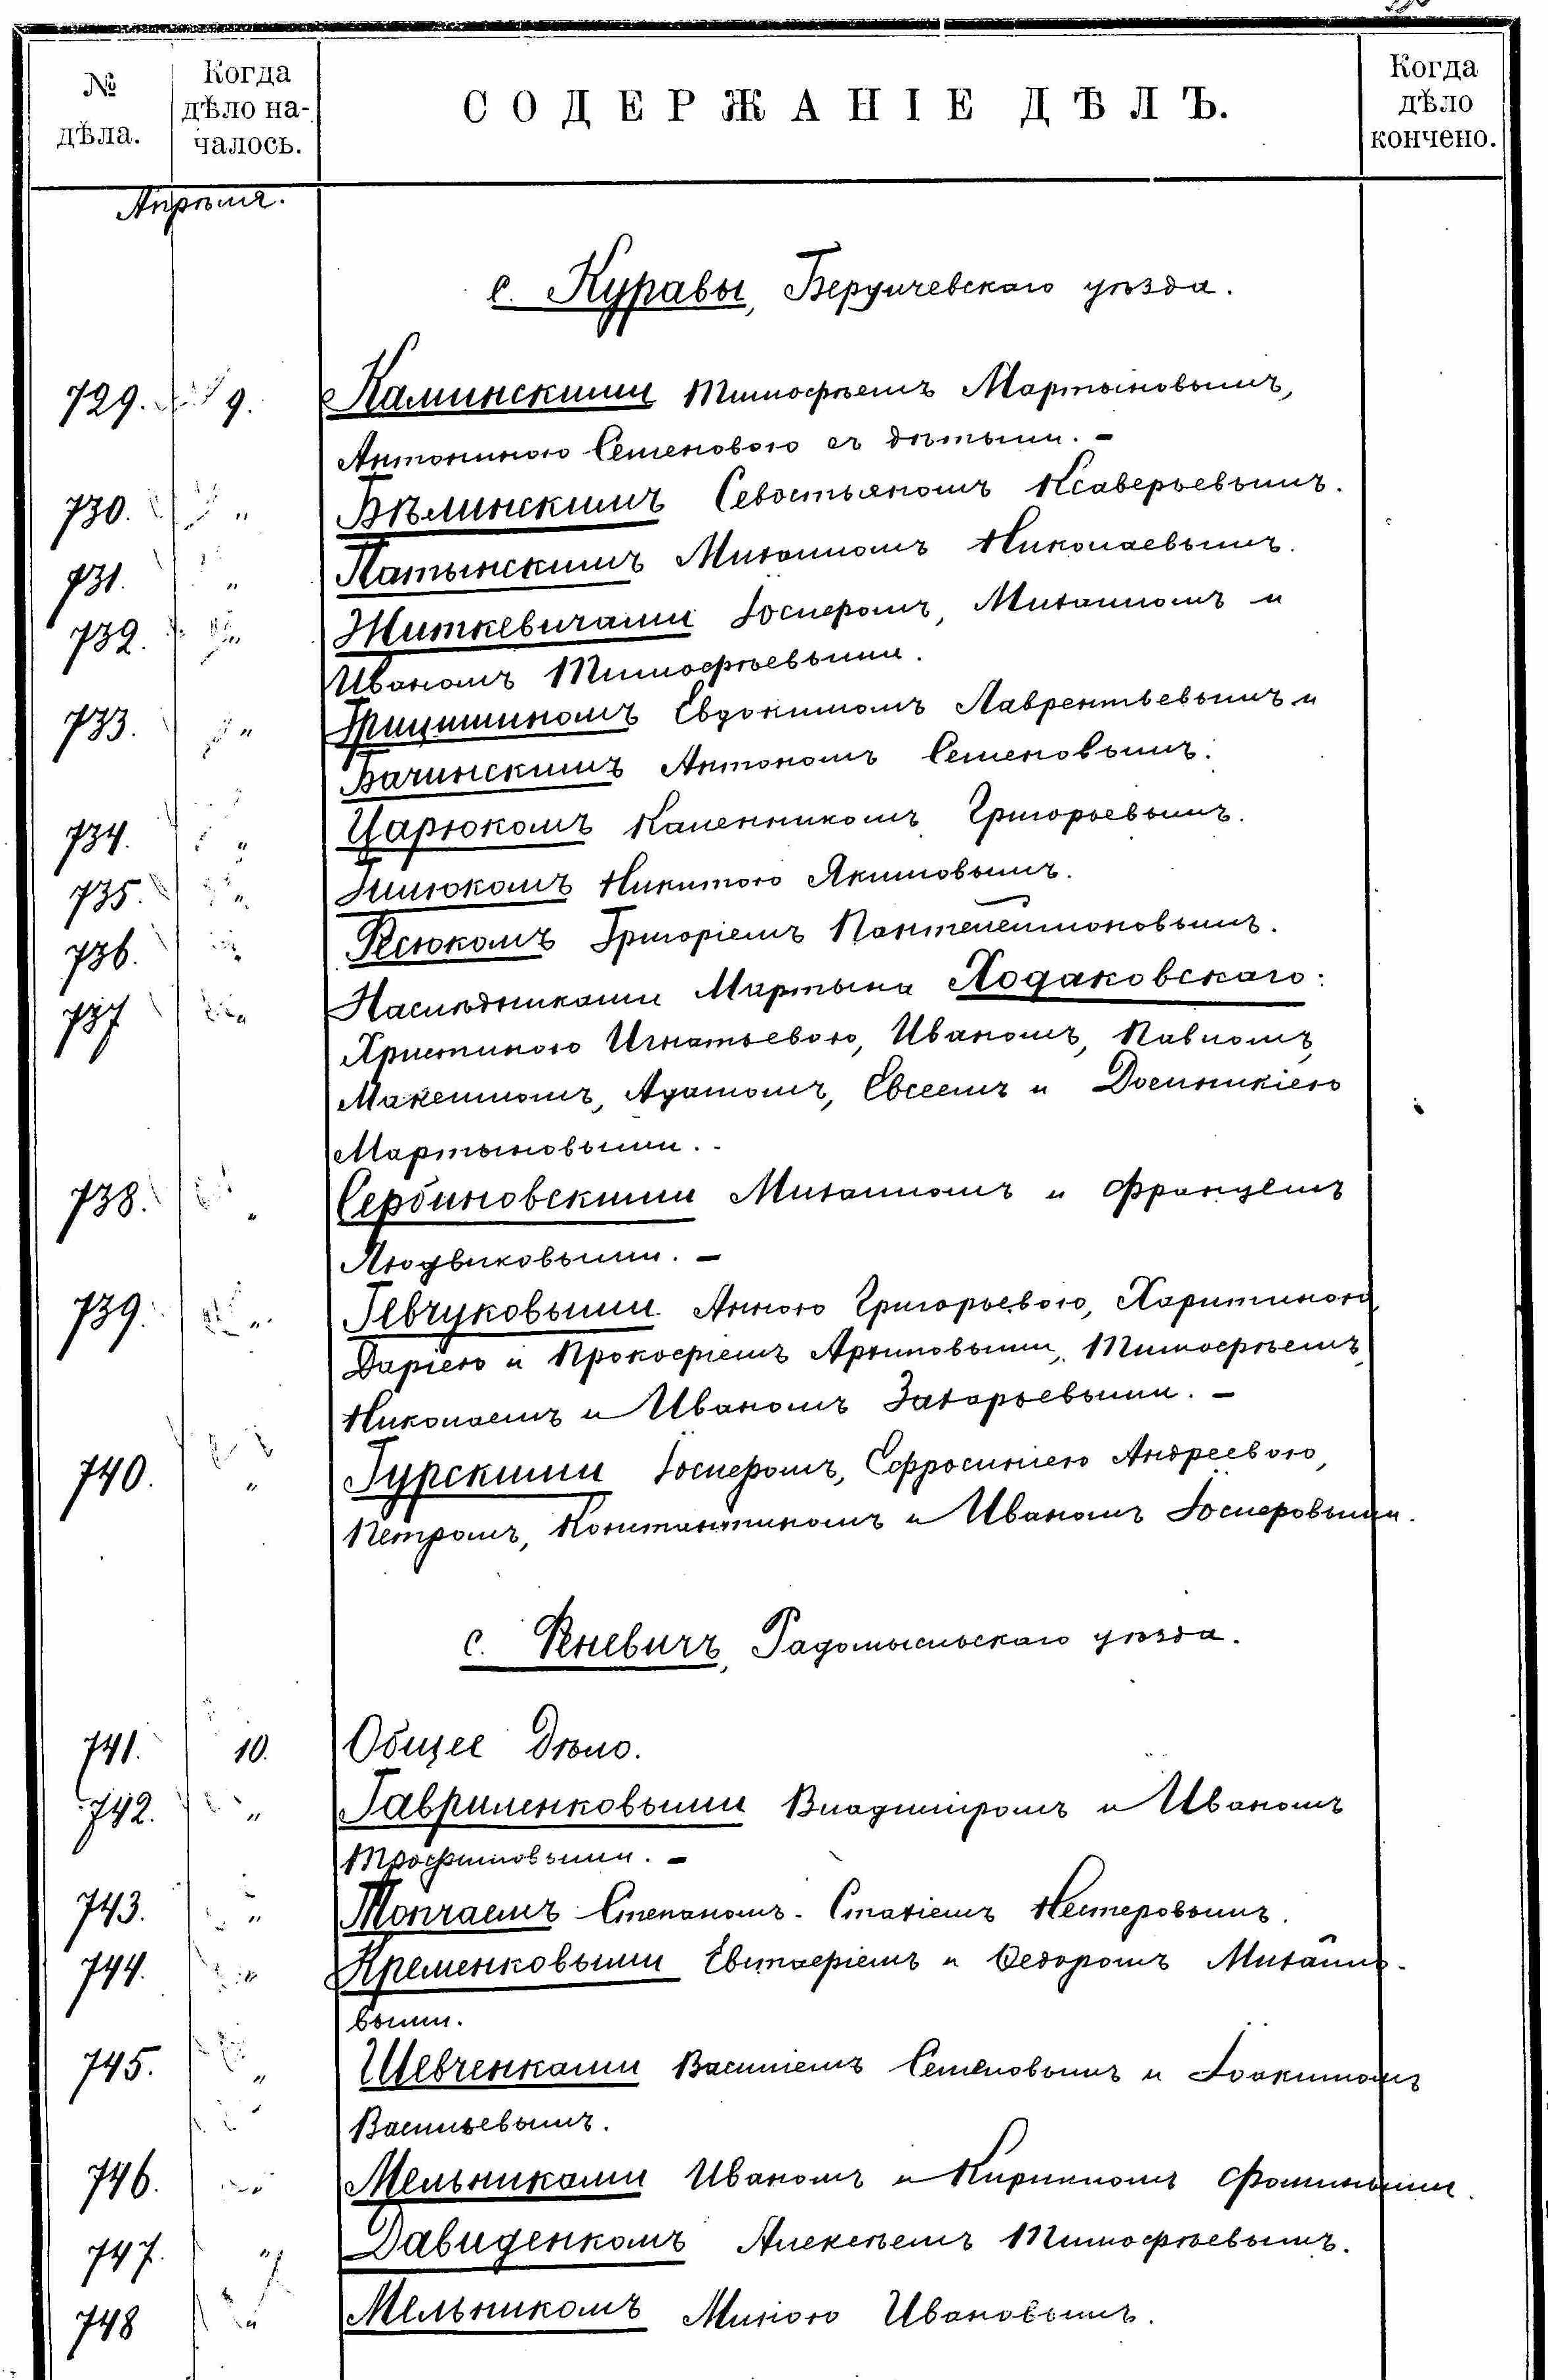 № дѣла.
Когда дѣло началось.
СОДЕРЖАНІЕ ДѢЛЪ.
Когда дѣло кончено.
Апрѣля.
с. Журавы, Бердичевскаго уѣзда.
729. 9. Каминскими Тимофѣемъ Мартыновымъ,
Антониною Семеновою съ дѣтьми. –
730. " Бѣлинскимъ Севостьяномъ Ксаверьевымъ.
731. " Латынскимъ Михаиломъ Николаевымъ.
732. " Житкевичами Іосифомъ, Михаиломъ и
Иваномъ Тимофѣевыми.
733. " Грицишиномъ Евдокимомъ Лаврентьевымъ и
Бачинскимъ Антономъ Семеновымъ.
734. " Царюкомъ Каленникомъ Григорьевымъ.
735. " Никитою Якимовымъ.
736. " Григоріемъ Пантелеймоновымъ.
737 " Наслѣдниками Мартына Ходаковскаго:
Христиною Игнатьевою, Иваномъ, Павломъ,
Максимомъ, Адамомъ, Евсеемъ и Доминикіею
Мартыновыми. -
738. " Сербиновскими Михаиломъ и Францемъ
Людвиковыми. –
739. " Гевчуковыми Анною Григорьевою, Харитиною,
Даріею и Прокофіемъ Архиповыми, Тимофѣемъ,
Николаемъ и Иваномъ Захарьевыми. –
740. " Гурскими Іосифомъ, Ефросиніею Андреевою,
Петромъ, Константиномъ и Иваномъ Іосифовыми.
с. Кневичъ, Радомысльскаго уѣзда.
741. 10. Общее дѣло.
742. " Гавриленковыми Владиміромъ и Иваномъ
Трофимовыми. –
743. " Топчаемъ Степаномъ-Стахіемъ Нестеровымъ.
744. " Кременковыми Евтафіемъ и Ѳедоромъ Михайло-
выми.
745. " Шевченками Василіемъ Семеновымъ и Іоакимомъ
Васильевымъ.
746. " Мельниками Иваномъ и Кирилломъ Фомиными.
747. " Давиденкомъ Алексѣемъ Тимофѣевымъ.
748 " Мельникомъ Миною Ивановымъ.